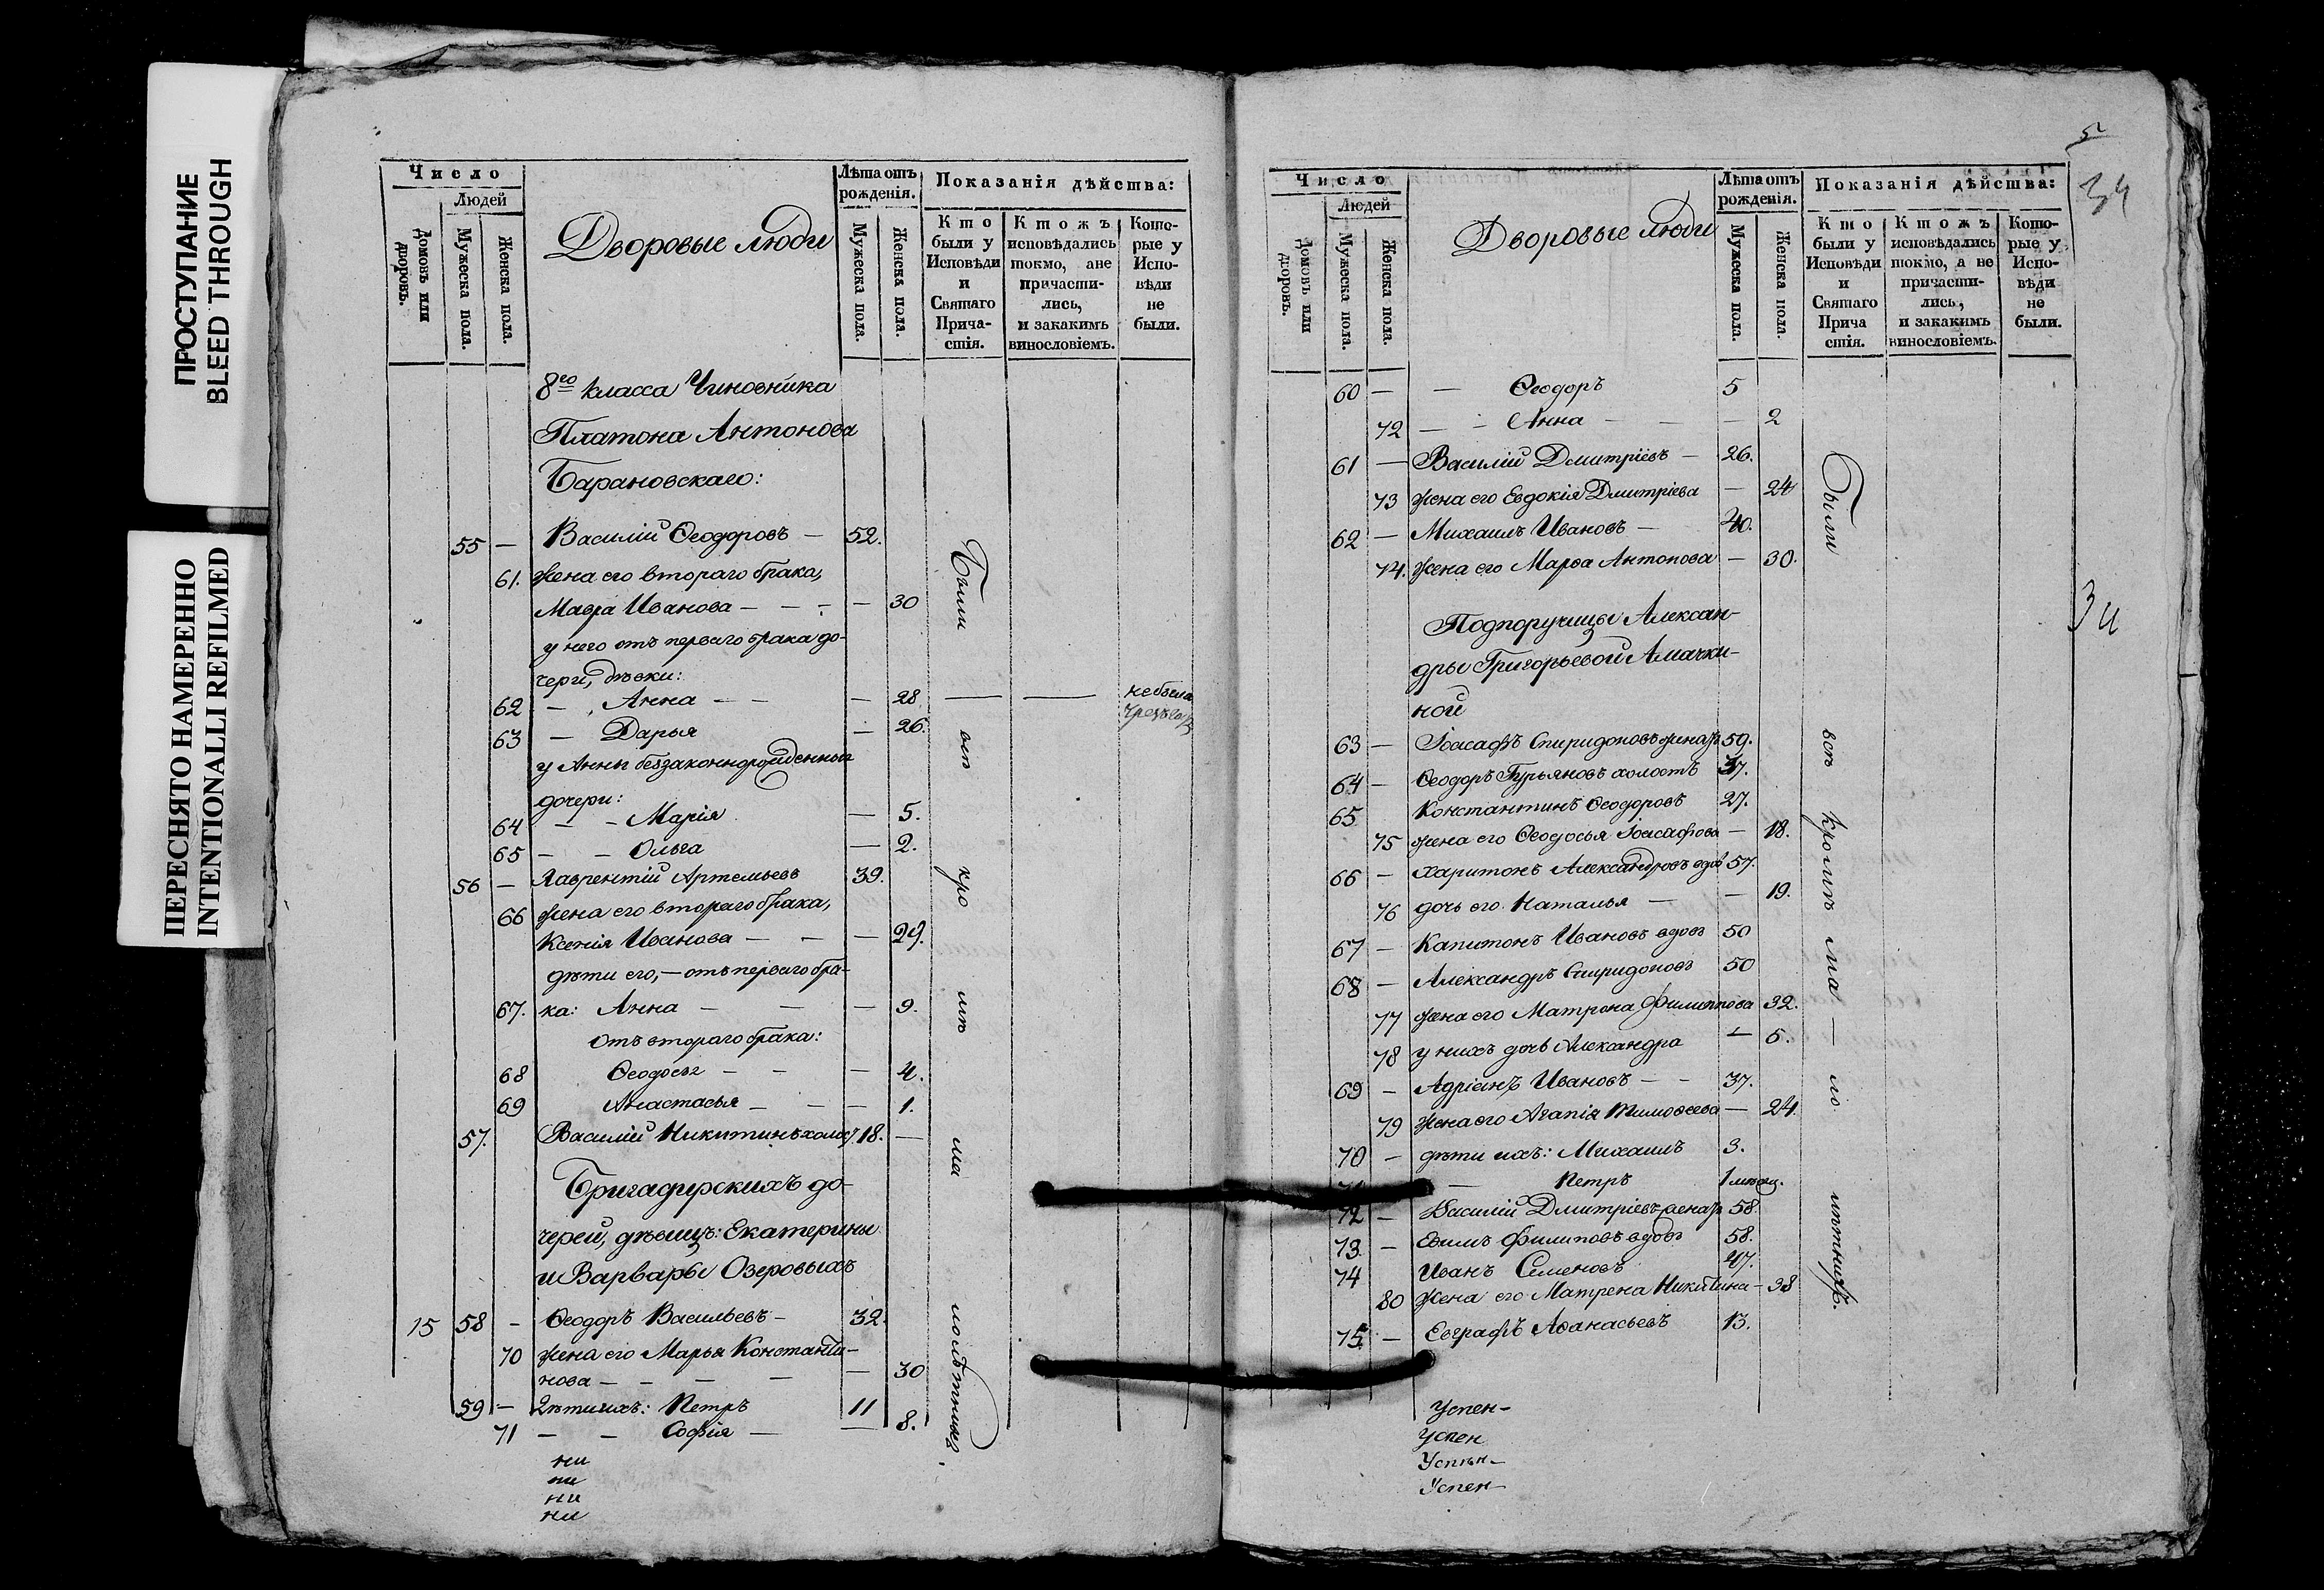 ПРОСТУПАНИЕ
BLEED THROUGH
ПЕРЕСНЯТО НАМЕРЕННО
INTENTIONALLI REFILMED
Число
Людей
Домовъ или дворовъ.
Мужеска пола.
Женска пола.
Дворовые люди
Лѣта отъ рожденія.
Мужеска пола.
Женска пола.
Показанія дѣйства:
Кто были у Исповѣди и Святаго Прича-стія.
Ктожъ исповѣдались токмо, ане причасти-лись, и закакимъ винословіемъ.
Кото-рые у Испо-вѣди не были.
8го класса Чиновника
Платона Антонова
Барановскаго:
55 — Василій Ѳеодоровъ — 52.
61. жена его втораго брака,
Мавра Иванова — — — — 30
у него отъ перваго брака до-
чери, дѣвки:
62 — Анна — — — 28 — — небыла
63 — Дарья — 26.
у Анны беззаконнорожденныя
дочери:
64 — — Марія — 5.
65 — — Ольга — 2.
56 — Лаврентій Артемьевъ 39.
66 жена его втораго брака,
Ксенія Иванова — — — 29.
дѣти его, — отъ перваго бра-
67. ка: Анна — — — 9.
отъ втораго брака:
68 Ѳеодосья — — — 4.
69 Анастасья — — — 1.
57. Василій Никитинъ холос 18. —
Бригадирскихъ до-
черей, дѣвицъ: Екатерины
и Варвары Озеровыхъ
15 58 — Ѳеодоръ Васильевъ — 32.
70 жена его Марья Константи-
нова — — — — — 30
59 — Дѣти ихъ: Петръ 11
71 — — Софія — — 8.
ни
ни
ни
ни
Были всѣ кро мѣ ма лолѣтныхъ
5
34
Число
Людей
Домовъ или дворовъ.
Мужеска пола.
Женска пола.
Дворовые люди
Лѣта отъ рожденія.
Мужеска пола.
Женска пола.
Показанія дѣйства:
Кто были у Исповѣди и Святаго Прича стія.
Ктожъ исповѣдались токмо, а не причасти-лись, и закакимъ винословіемъ.
Кото-рые у Испо-вѣди не были.
60 — — Ѳеодоръ 5
72 — — Анна — — — 2
61 — Василій Дмитріевъ — 26.
73 жена его Евдокія Дмитріева — 24
62 — Михаилъ Ивановъ — 40.
74. жена его Марѳа Антонова — 30.
Подпоручицы Алексан-
дры Григорьевой Амачки-
ной
63 — Іоасафъ Спиридоновъ женат 59.
64 — Ѳеодоръ Гурьяновъ холостъ 37.
65 Константинъ Ѳеодоровъ 27.
75 жена его Ѳеодосья Іоасафова — 18.
66 — Харитонъ Александровъ вдов 57.
76 дочь его Наталья — — 19.
67 — Капитонъ Ивановъ вдовъ 50
68 — Александръ Спиридоновъ 50
77 жена его Матрона Филиппова 32.
78 у нихъ дочь Александра — 5.
69 — Адріанъ Ивановъ — — 37.
79 жена его Агапія Тимоѳеева — 24.
70 — дѣти ихъ: Михаилъ 3.
— Петръ 1 мѣсяц.
72 — Василій Дмитріевъ женат 58.
73 — Евѳимъ Филиповъ вдовъ 58.
74 Иванъ Семеновъ 47.
80 жена его Матрена Никитина — 38
75 — Евграфъ Аѳанасьевъ 13.
Успен-
Успен
Успѣн-
Успен-
Были всѣ кромѣ ма — ло лѣтнихъ.